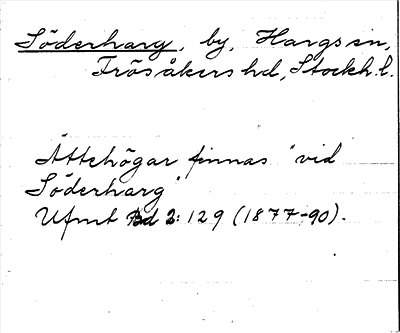 Söderharg, by, Hargs sn,
Frösåkers hd, Stockh. l.
Ättehögar finnas "vid
Söderharg"
Ufmt Bd 2: 129 (1877-90).